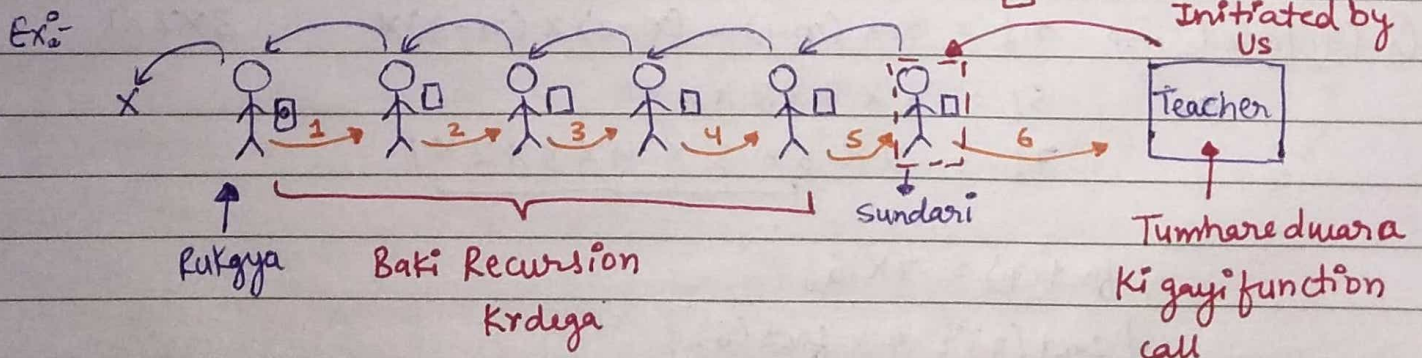 Ex:-
Initiated by
Us
X
Teacher
1 2 3 4 5 6
Sundari
Rukgya
Baki Recursion
Krdega
Tumhare dwara
Ki gayi function
call